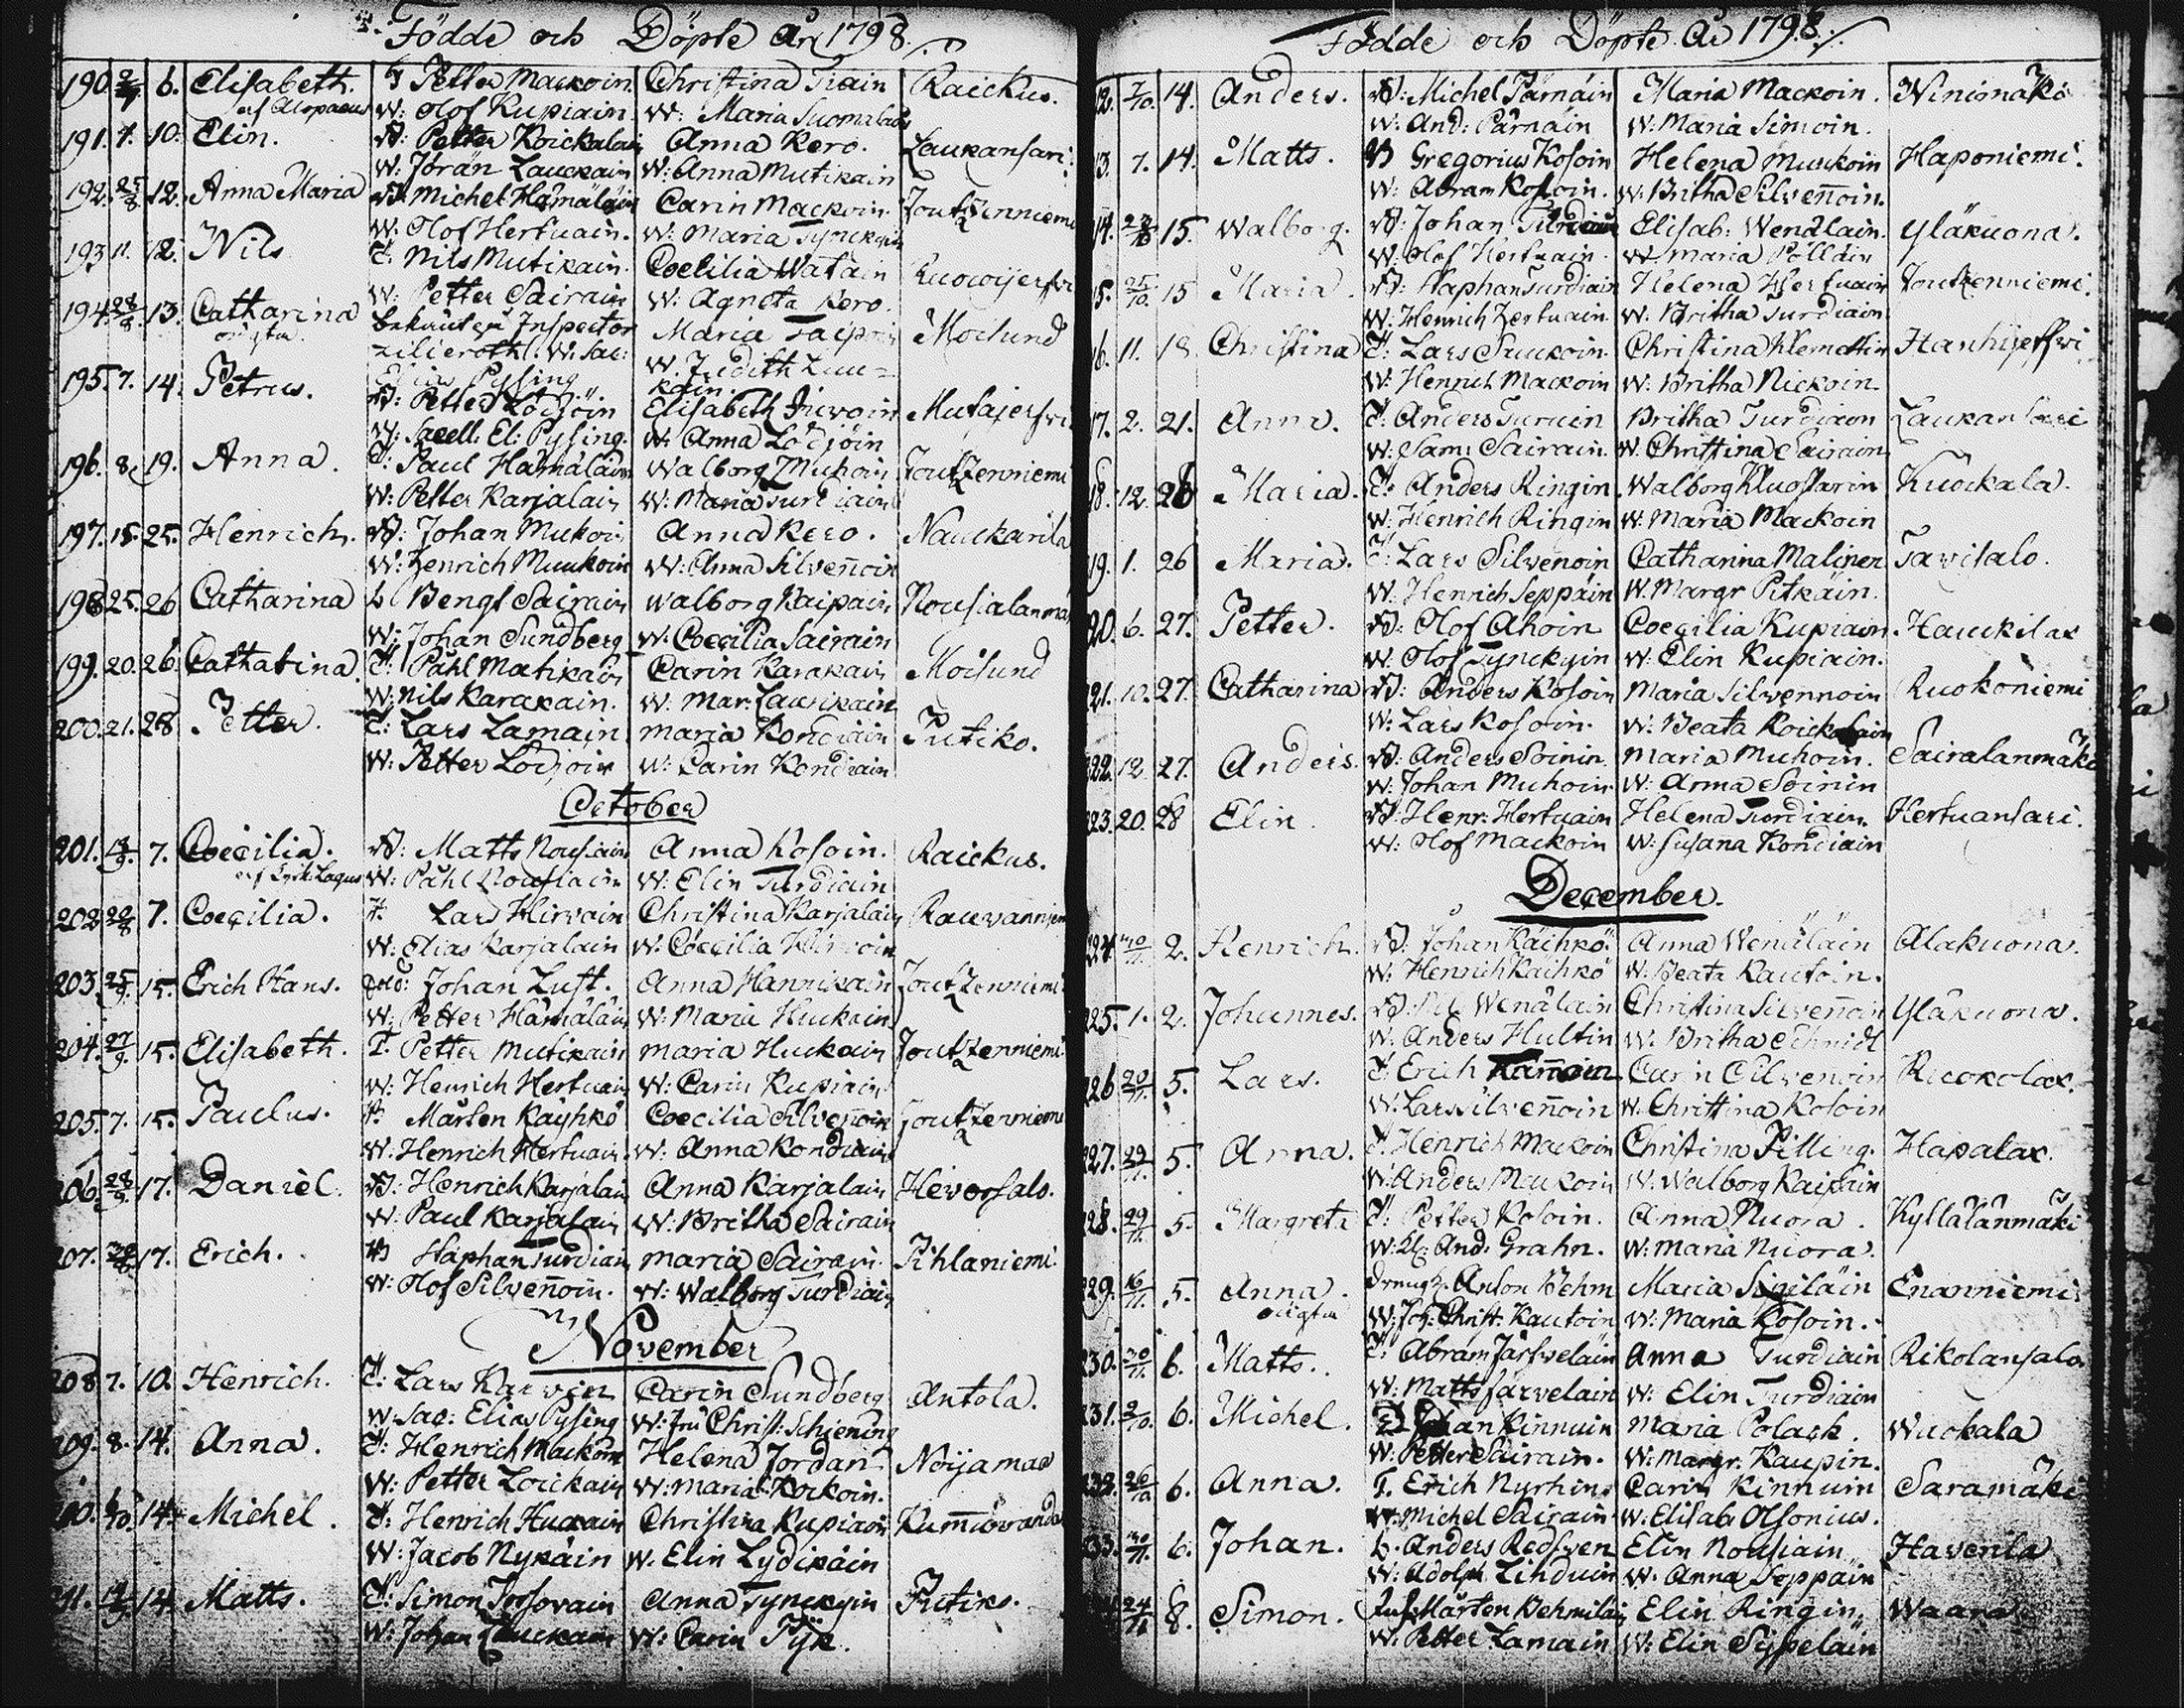 Födde och Döpte År 1798.
190. 2/9. 6. Elisabeth. Petter Mackoin. Christina Tiain Raickus.
af Alopaeus W: Olof Kupiain. W: Maria Suomalain
191. 7. 10. Elin. B: Petter Koickalain Anna Kero. Laukansari.
W: Jöran Lauckain W: Anna Mutikain
192. 25/8. 12. Anna Maria B: Michel Hämäläin Carin Mackoin. Joutzenniemi
W: Olof Hertuain. W: Maria Tynckyin
193 11. 12. Nils T: Nils Mutikain. Coecilia Watain
W: Petter Sairain W: Agneta Kero.
194. 28/8. 13. Catharina bekräut: Inspector Maria Taipoin Moisund
oägta W: Sac: W. Judith Luu=
195. 7. 14. Petrus. Elias Pysing kain.
B: Petter Lödjöin Elisabeth Hirvoin
W: Sacell. El: Pysing. W: Anna Lödjöin
196. 8. 19. Anna. T: Paul Hämäläin Walborg Muhoin Joutzenniemi
W: Petter Karjalain W: Maria Turdiain
197. 15. 25. Henrich. B: Johan Mukoin Anna Kero. Nauckarila
W: Henrich Muukoin W: Anna Silvenoin
198 25. 26 Catharina L Bengt Sairain Walborg Kaipain Nousialanmä
W: Johan Sundberg W: Coecilia Sairain
199. 20. 26. Catharina. T: Påhl Matikain Carin Karakain Moisund
W: Nils Karakain. W: Mar: Laurikain
200. 21. 28 Petter. T: Lars Lamain. Maria Kondiain Putiko.
W: Petter Lodjoin W: Carin Kondiain
October
201. 18/9. 7. Coecilia. B: Matts Nousiain Anna Kosoin. Raickus.
af Lagus W: Påhl Nousiain W: Elin Turdiain
202 22/8 7. Coecilia. T. Lars Hirvoin Christina Karjalain
W: Elias Karjalain W: Coecilia Hirvoin
203. 25/9. 15. Erich Hans. Johan Luft. Anna Hannikain Joutzenniemi
W: Petter Hämäläin W: Maria Huckain.
204. 27/9. 15. Elisabeth. T. Petter Mutikain Maria Huckain Joutzenniemi
W: Henrich Hertuain W: Carin Kupiain
205. 7. 15. Paulus. Mårten Käyhkö Coecilia Silvenoin Joutzenniemi
W: Henrich Hertuain. W: Anna Kondiain
206. 28/9. 17. Daniel. B: Henrich Karjalain Anna Karjalain Hevossalo.
W: Paul Karjalain W: Britha Sairain
207. 17. Erich. Staphan Turdiain Maria Sairain. Pihlaniemi.
W: Olof Silvenoin. W: Walborg Turdiain
November
208 7. 10. Henrich. T: Lars Karvin Carin Sundberg Antola.
W. Sac: Elias Pysing W: Fru Christ: Schiening
209. 8. 14. Anna. T: Henrich Mackoin Helena Jordan Noijamae
W: Petter Loickain W: Maria Kockoin.
210. 14. Michel. T: Henrich Huckain Christina Kupiain
W: Jacob Nykäin W. Elin Lydikäin
211. 14. Matts. T: Simon Torsovain Anna Tynckyin Putiko.
W: Johan Lauckain W: Carin Pyk.
Födde och Döpte År 1798.
12. 7/10. 14. Anders. B: Michel Pärnäin Maria Mackoin. Winiomäki
W: And: Pärnäin W: Maria Simoin.
13. 7. 14. Matts. Gregorius Kosoin Helena Muukoin Haponiemi.
W: Abram Kosoin. W: Britha Silvenoin.
14. 15. Walborg. B: Johan Turdiain Elisab: Wenäläin. Yläkuona.
W: Olof Hertuain. W: Maria Pölläin
15. 25/10. 15 Maria. B: Staphan Turdiain Helena Hertuain Joutzenniemi.
W: Henrich Hertuain. W: Britha Turdiain
16. 11. 18. Christina T: Lars Suukoin. Christina Klemettin Hanhijerfwi
W: Henrich Mackoin W: Britha Nickoin.
17. 2. 21. Anna. T: Anders Turuin Britha Turdiain Laukansaari
W: Sam: Sairain. W: Christina Sairain
18. 12. 26 Maria. T: Anders Ringin Walborg Kluostarin Kuockala.
W: Henrich Ringin W: Maria Mackoin
19. 1. 26 Maria. T: Lars Silvenoin Catharina Malinen Tavisalo.
W: Henrich Seppäin W. Margr Pitkäin.
20. 6. 27. Petter. B: Olof Ahoin Coecilia Kupiain. Hauckilax
W: Olof Tynckyin W: Elin Kupiain.
21. 10. 27. Catharina B: Anders Kosoin Maria Silvennoin Ruokoniemi
W: Lars Kosoin. W: Beata Koickalain
222. 12. 27. Anders. B: Anders Soinin. Maria Muhoin. Sairalanmäki
W: Johan Muhoin W: Anna Soinin
223. 20. 28 Elin B: Henr: Hertuain Helena Turdiain. Hertuansari.
W: Olof Mackoin W: Susana Kondiain
December.
224. 30/11. 2. Henrich. B: Johan Käihkö. Anna Wenäläin Alakuona.
W: Henrich Käihkö W: Beata Kautoin.
225. 1. 2. Johannes. B: Wenäläin Christina Silvenoin Yläkuona.
W: Anders Hultin W: Britha Schmidt
226 20/11. 5. Lars. T: Erich Kämäin Carin Silvenoin Ruokolax.
W: Lars Silvenoin W. Christina Kosoin
227. 29/11. 5. Anna. T: Henrich Mackoin Christina Pilling. Hapalax.
W: Anders Mackoin W. Walborg Kaipain
228. 29/11. 5. Margreta T: Petter Kosoin. Anna Nuora. Kyllälänmäki
W: Kl: And: Grahn. W: Maria Nuora.
229. 16/11. 5. Anna. Anton Behm Maria Sigiläin Enanniemi
oägta W: Joh: Christ: Kautoin W: Maria Kosoin.
230. 30/11. 6. Matts. T: Abram Järfveläin Anna Turdiain Rikolansalo
W: Matts Järveläin W: Elin Turdiain
231. 2/10. 6. Michel. Johan Kinnuin Maria Polack. Wuokala
W: Petter Sairain. W: Margr. Kaupin.
232. 26/10 6. Anna. T. Erich Nyrhin Carin Kinnuin Saramäki
W: Michel Sairain. W: Elisab: Olsonius.
233. 30/11. 6. Johan. L. Anders Redsven Elin Nousiain Haverila
W: Adolph Linduin W: Anna Seppäin
24/11 8. Simon. Mårten Behmiläin Elin Ringin. Waara
W: Petter Lamain W: Elin Sypeläin